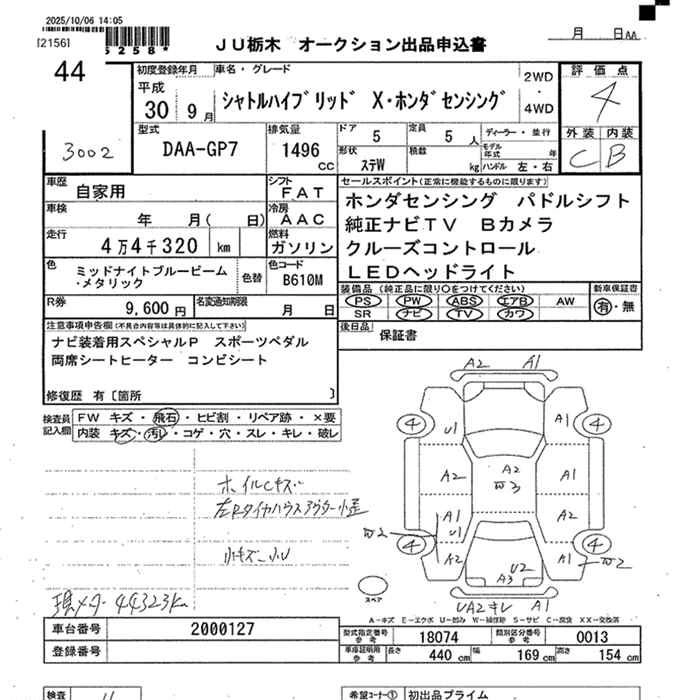 2025/10/06 14:05
[2156]
5258*
JU栃木 オークション出品申込書
月 日 AA
44
3002
初度登録年月
平成
30 9月
車名・グレード
シャトルハイブリッド X・ホンダセンシング
2WD
・
4WD
評価点
4
外装 内装
C B
型式
DAA-GP7
排気量
1496 CC
ドア 5
定員 5人
ディーラー・並行
形状 ステW
積載 kg
モデル年式 年
ハンドル 左・右
車歴
自家用
シフト
FAT
車検
年 月( 日)
冷房
AAC
走行
4万4千320 km
燃料
ガソリン
色
ミッドナイトブルービーム
・メタリック
色替
色コード
B610M
R券
9,600円
名変通知期限
月 日
セールスポイント(正常に機能するものに限ります)
ホンダセンシング パドルシフト
純正ナビTV Bカメラ
クルーズコントロール
LEDヘッドライト
装備品(純正品に限り○をつけてください)
PS PW ABS エアB AW
SR ナビ TV カワ
新車保証書
有・無
後日品
保証書
注意事項申告欄(不具合内容等は具体的に記入して下さい)
ナビ装着用スペシャルP スポーツペダル
両席シートヒーター コンビシート
修復歴 有〔箇所 〕
検査員記入欄
FW キズ・飛石・ヒビ割・リペア跡・×要
内装 キズ・汚レ・コゲ・穴・スレ・キレ・破レ
ホイルCキズ
左Rタイヤハウスアウター小歪
小キズ・小U
現メータ 44323km
A2 A1
4 U1 A1 4
A2 A2 W3 A1
A1 U1 A2
W2
4 A2 U2 A3 A1 4 W2
UA2キレ A1
スペア
A-キズ E-エクボ U-凹み W-補修跡 S-サビ C-腐食 XX-交換済
車台番号
2000127
登録番号
型式指定番号 参考
18074
類別区分番号 参考
0013
車庫証明用 参考
長さ 440 cm
幅 169 cm
高さ 154 cm
検査
希望コーナー① 初出品プライム